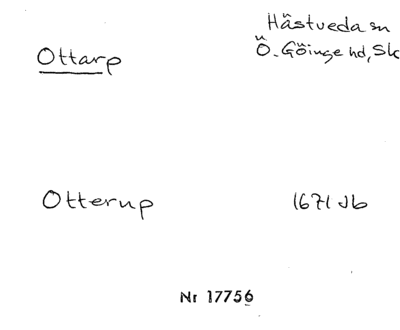 Ottarp
Hästveda sn
Ö. Göinge hd, Sk
Otterup
1671 Jb
Nr 17756